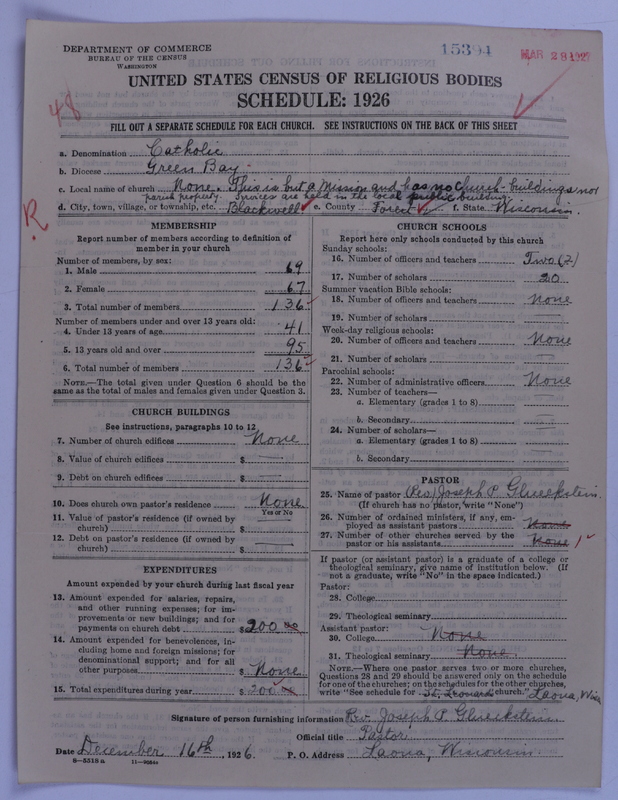 DEPARTMENT OF COMMERCE
BUREAU OF THE CENSUS
WASHINGTON
15394
MAR 28 1927
UNITED STATES CENSUS OF RELIGIOUS BODIES
SCHEDULE: 1926
48
FILL OUT A SEPARATE SCHEDULE FOR EACH CHURCH. SEE INSTRUCTIONS ON THE BACK OF THIS SHEET
a. Denomination Catholic
b. Diocese Green Bay
c. Local name of church None. This is but a Mission and has no church-buildings nor
parish property. Services are held in the local public building.
d. City, town, village, or township, etc. Blackwell e. County Forest f. State Wisconsin.
R
MEMBERSHIP
Report number of members according to definition of
member in your church
Number of members, by sex:
1. Male 69
2. Female 67
3. Total number of members 136
Number of members under and over 13 years old:
4. Under 13 years of age 41
5. 13 years old and over 95
6. Total number of members 136
NOTE.—The total given under Question 6 should be the
same as the total of males and females given under Question 3.
CHURCH BUILDINGS
See instructions, paragraphs 10 to 12
7. Number of church edifices None
8. Value of church edifices $
9. Debt on church edifices $
10. Does church own pastor's residence None
Yes or No
11. Value of pastor's residence (if owned by
church) $
12. Debt on pastor's residence (if owned by
church) $
EXPENDITURES
Amount expended by your church during last fiscal year
13. Amount expended for salaries, repairs,
and other running expenses; for im-
provements or new buildings; and for
payments on church debt $200 00
14. Amount expended for benevolences, in-
cluding home and foreign missions; for
denominational support; and for all
other purposes $ None
15. Total expenditures during year $ 200 00
CHURCH SCHOOLS
Report here only schools conducted by this church
Sunday schools:
16. Number of officers and teachers Two (2)
17. Number of scholars 20
Summer vacation Bible schools:
18. Number of officers and teachers None
19. Number of scholars
Week-day religious schools:
20. Number of officers and teachers None
21. Number of scholars
Parochial schools:
22. Number of administrative officers None
23. Number of teachers—
a. Elementary (grades 1 to 8)
b. Secondary
24. Number of scholars—
a. Elementary (grades 1 to 8)
b. Secondary
PASTOR
25. Name of pastor (Rev) Joseph P. Glueckstein.
(If church has no pastor, write "None")
26. Number of ordained ministers, if any, em-
ployed as assistant pastors None
27. Number of other churches served by the
pastor or his assistants None 1
If pastor (or assistant pastor) is a graduate of a college or
theological seminary, give name of institution below. (If
not a graduate, write "No" in the space indicated.)
Pastor:
28. College
29. Theological seminary
Assistant pastor:
30. College None
31. Theological seminary None.
NOTE.—Where one pastor serves two or more churches,
Questions 28 and 29 should be answered only on the schedule
for one of the churches; on the schedules for the other churches,
write "See schedule for St. Leonard church." Laona, Wis
Signature of person furnishing information Rev. Joseph P. Glueckstein.
Official title Pastor
Date December 16th, 1926. P. O. Address Laona, Wisconsin.
8—5318 a